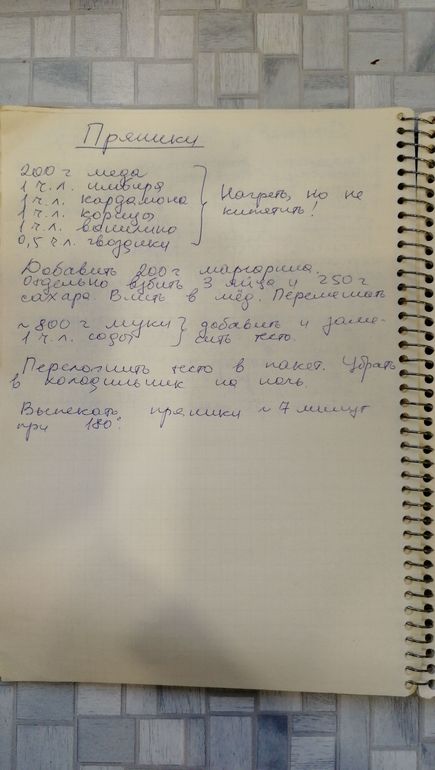 Пряники
200 г меда
1 ч.л. имбиря
1 ч.л. кардамона
1 ч.л. корицы
1 ч.л. ванилина
0,5 ч.л. гвоздики
} Нагреть, но не
кипятить!
Добавить 200 г маргарина.
Отдельно взбить 3 яйца и 250 г
сахара. Влить в мёд. Перемешать
~ 800 г муки } добавить и заме-
1 ч.л. соды } сить тесто.
Переложить тесто в пакет. Убрать
в холодильник на ночь.
Выпекать пряники ~ 7 минут
при 180°.